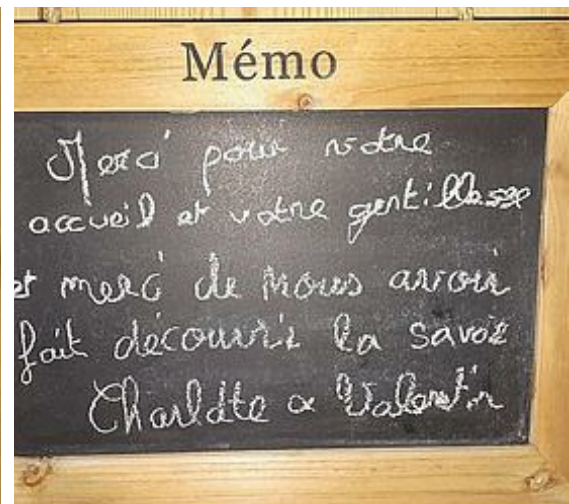 Mémo
Merci pour votre
accueil et votre gentillesse
et merci de nous avoir
fait découvrir la Savoie
Charlotte & Valentin